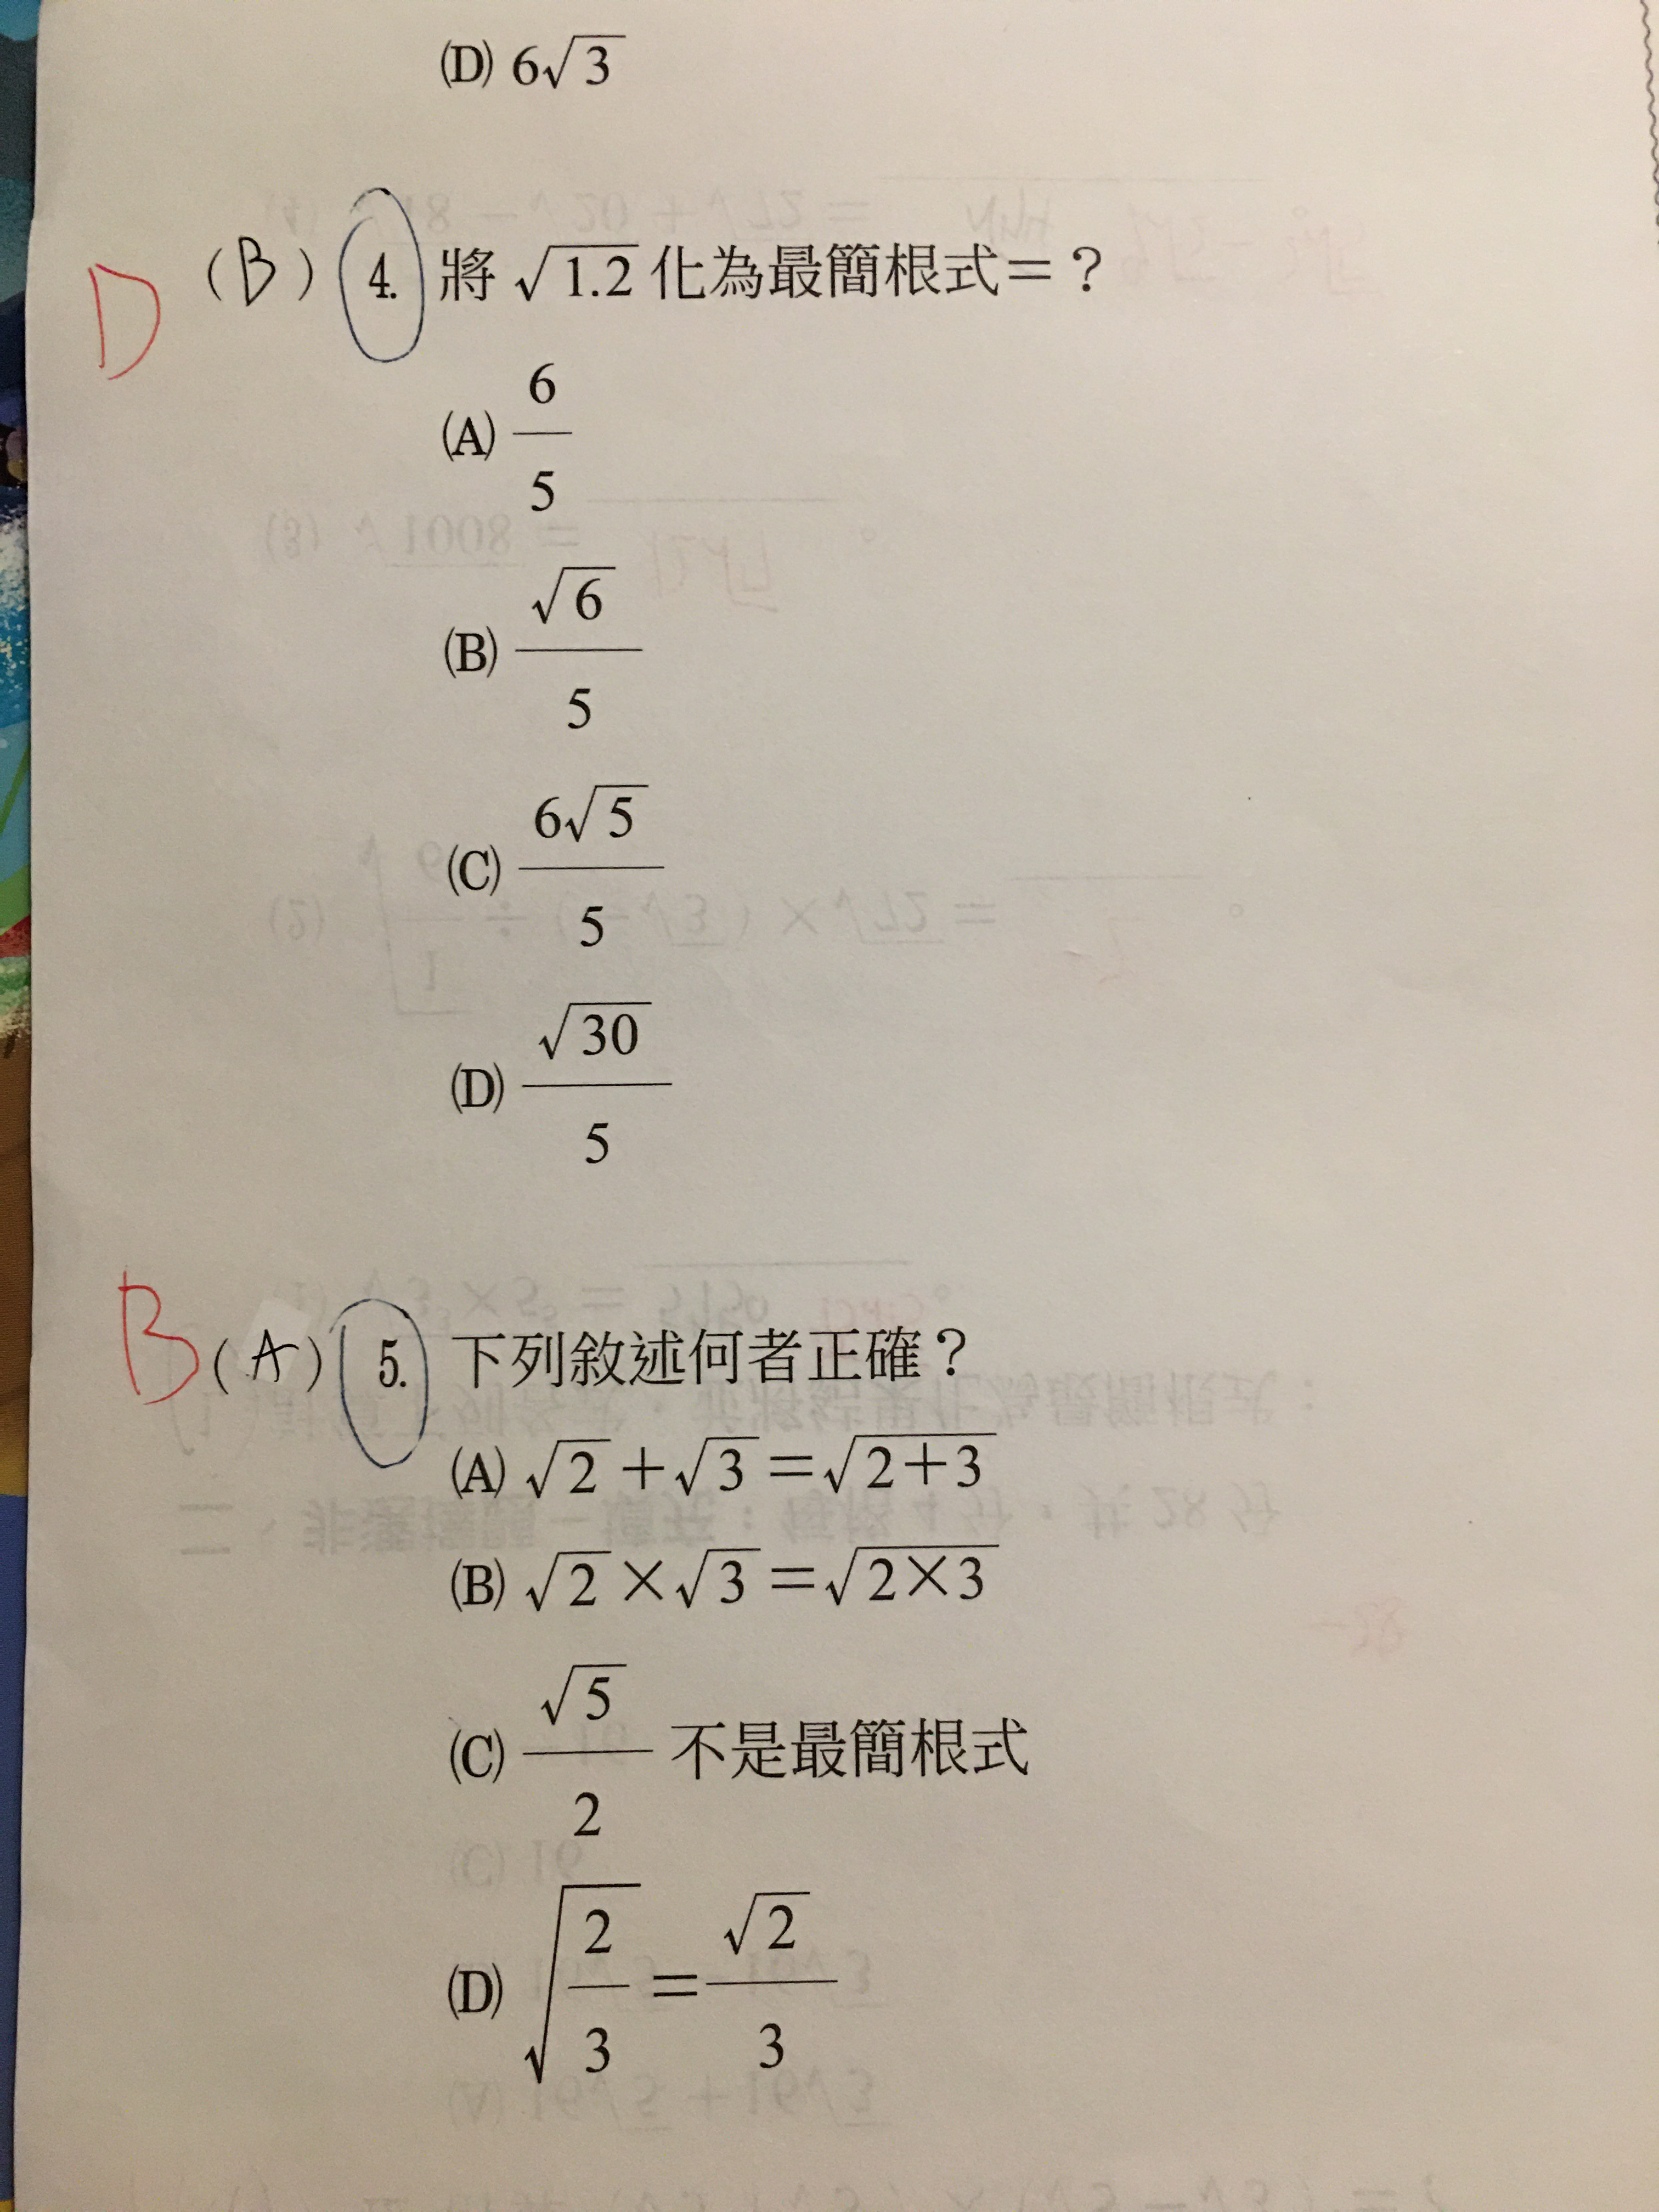 (D) 6√3
D (B) 4. 將 √1.2 化為最簡根式＝？
(A) 6/5
(B) √6/5
(C) 6√5/5
(D) √30/5
B (A) 5. 下列敘述何者正確？
(A) √2＋√3＝√(2＋3)
(B) √2×√3＝√(2×3)
(C) √5/2 不是最簡根式
(D) √(2/3)＝√2/3